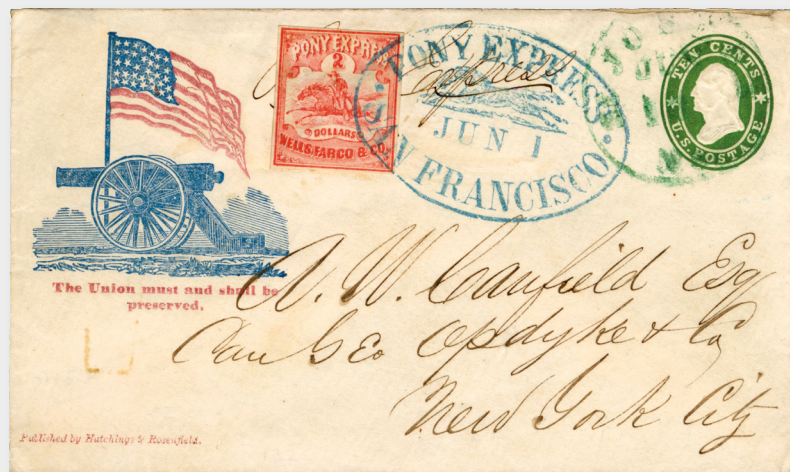 PONY EXPRE
2
DOLLARS
WELLS, FARGO & CO.
PONY EXPRESS
JUN 1
SAN FRANCISCO
Express
TEN CENTS
U.S. POSTAGE
The Union must and shall be
preserved.
A. W. Canfield Esq
Care Geo Opdyke & Co
New York City
Published by Hutchings & Rosenfield.